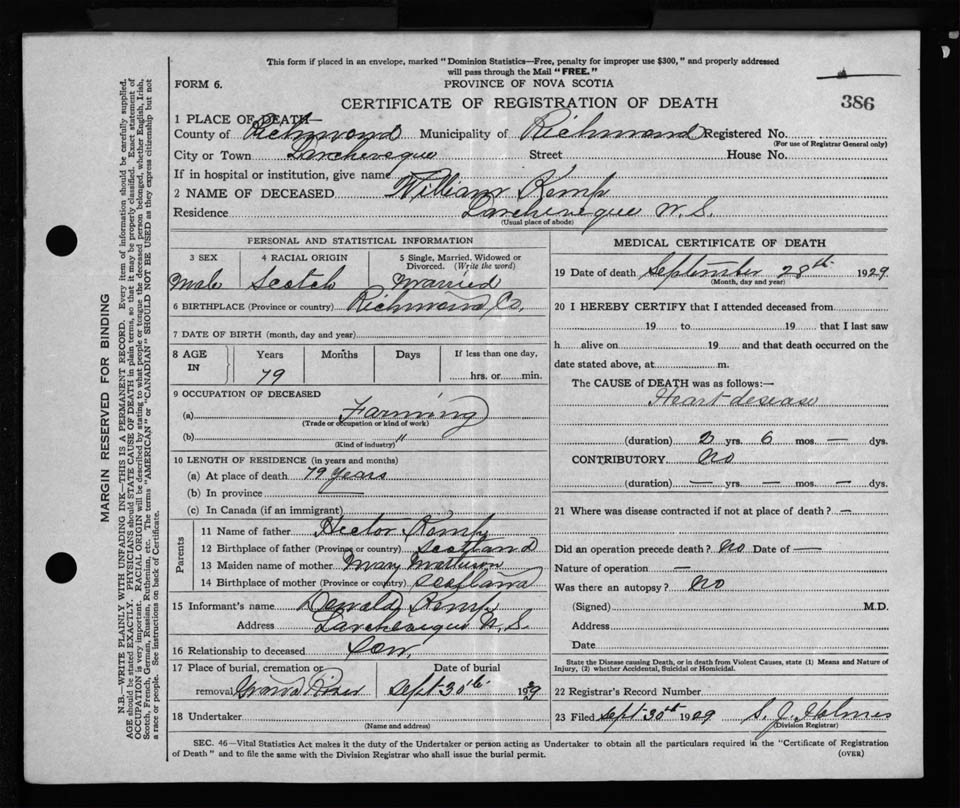 This form if placed in an envelope, marked "Dominion Statistics—Free, penalty for improper use $300," and properly addressed
will pass through the Mail "FREE."
FORM 6.
PROVINCE OF NOVA SCOTIA
CERTIFICATE OF REGISTRATION OF DEATH
386
1 PLACE OF DEATH—
County of Richmond Municipality of Richmond Registered No.
(For use of Registrar General only)
City or Town Larcheveque Street House No.
If in hospital or institution, give name
2 NAME OF DECEASED William Kemp
Residence Larcheveque N.S.
(Usual place of abode)
PERSONAL AND STATISTICAL INFORMATION
3 SEX
4 RACIAL ORIGIN
5 Single, Married, Widowed or
Divorced. (Write the word)
Male Scotch Married
6 BIRTHPLACE (Province or country) Richmond Co.
7 DATE OF BIRTH (month, day and year)
8 AGE
IN
Years
Months
Days
If less than one day,
79
hrs. or min.
9 OCCUPATION OF DECEASED
(a) Farming
(Trade or occupation or kind of work)
(b) "
(Kind of industry)
10 LENGTH OF RESIDENCE (in years and months)
(a) At place of death 79 Years
(b) In province —
(c) In Canada (if an immigrant)
Parents
11 Name of father Hector Kemp
12 Birthplace of father (Province or country) Scotland
13 Maiden name of mother Mary
14 Birthplace of mother (Province or country) Scotland
15 Informant's name Kemp
Address Larcheveque N.S.
16 Relationship to deceased Son
17 Place of burial, cremation or
removal Grand River
Date of burial
Sept 30th 1929
18 Undertaker
(Name and address)
MEDICAL CERTIFICATE OF DEATH
19 Date of death September 28th 1929
(Month, day and year)
20 I HEREBY CERTIFY that I attended deceased from
19 to 19 that I last saw
h alive on 19 and that death occurred on the
date stated above, at m.
The CAUSE of DEATH was as follows:—
Heart desease
(duration) 2 yrs. 6 mos. — dys.
CONTRIBUTORY No
(duration) — yrs. — mos. — dys.
21 Where was disease contracted if not at place of death? —
Did an operation precede death? No Date of —
Nature of operation —
Was there an autopsy? No
(Signed) M.D.
Address
Date
State the Disease causing Death, or in death from Violent Causes, state (1) Means and Nature of
Injury, (2) whether Accidental, Suicidal or Homicidal.
22 Registrar's Record Number
23 Filed Sept 30th 1929 S. J. Holmes
(Division Registrar)
SEC. 46—Vital Statistics Act makes it the duty of the Undertaker or person acting as Undertaker to obtain all the particulars required in the "Certificate of Registration
of Death" and to file the same with the Division Registrar who shall issue the burial permit.
(OVER)
MARGIN RESERVED FOR BINDING
N.B.—WRITE PLAINLY WITH UNFADING INK—THIS IS A PERMANENT RECORD. Every item of information should be carefully supplied.
AGE should be stated EXACTLY. PHYSICIANS should STATE CAUSE OF DEATH in plain terms, so that it may be properly classified. Exact statement of
OCCUPATION is very important. RACIAL ORIGIN will be described by stating to what people or tongue the deceased person belonged, whether English, Irish,
Scotch, French, German, Russian, Ruthenian, etc. The terms "AMERICAN" or "CANADIAN" SHOULD NOT BE USED as they express citizenship but not
a race or people. See instructions on back of Certificate.